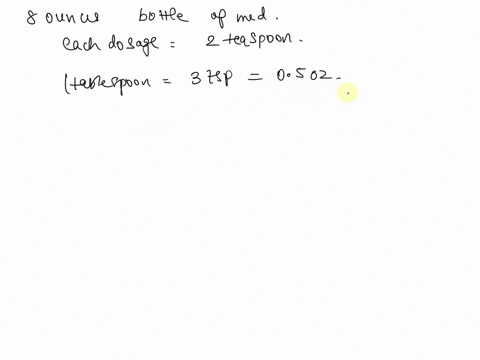 8 ounus bottle of med.
each dosage = 2 teaspoon.
1 tablespoon = 3 tsp = 0.5 oz.